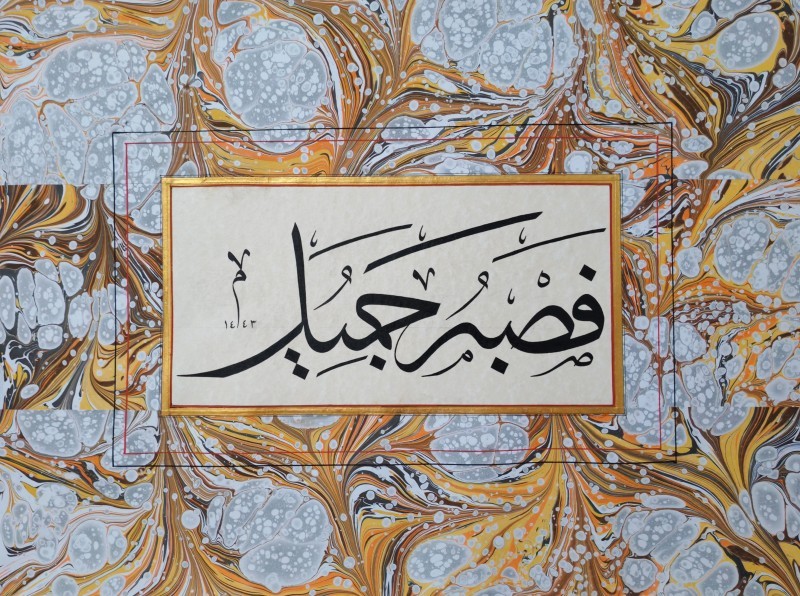 فَصَبْرٌ جَمِيلٌ
١٤٤٣